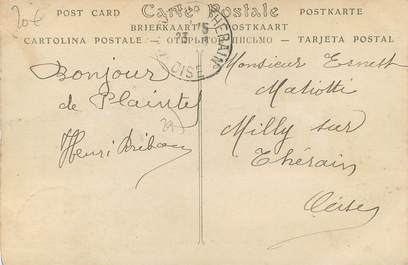 POST CARD
Carte Postale
POSTKARTE
BRIEFKAART — POSTKAART
CARTOLINA POSTALE — ОТКРЫТОЕ ПИСЬМО — TARJETA POSTAL
20€
THERAIN
OISE
Bonjour
de Plaintel
Henri
Monsieur Ernest
Maliotti
Milly sur
Thérain
Oise